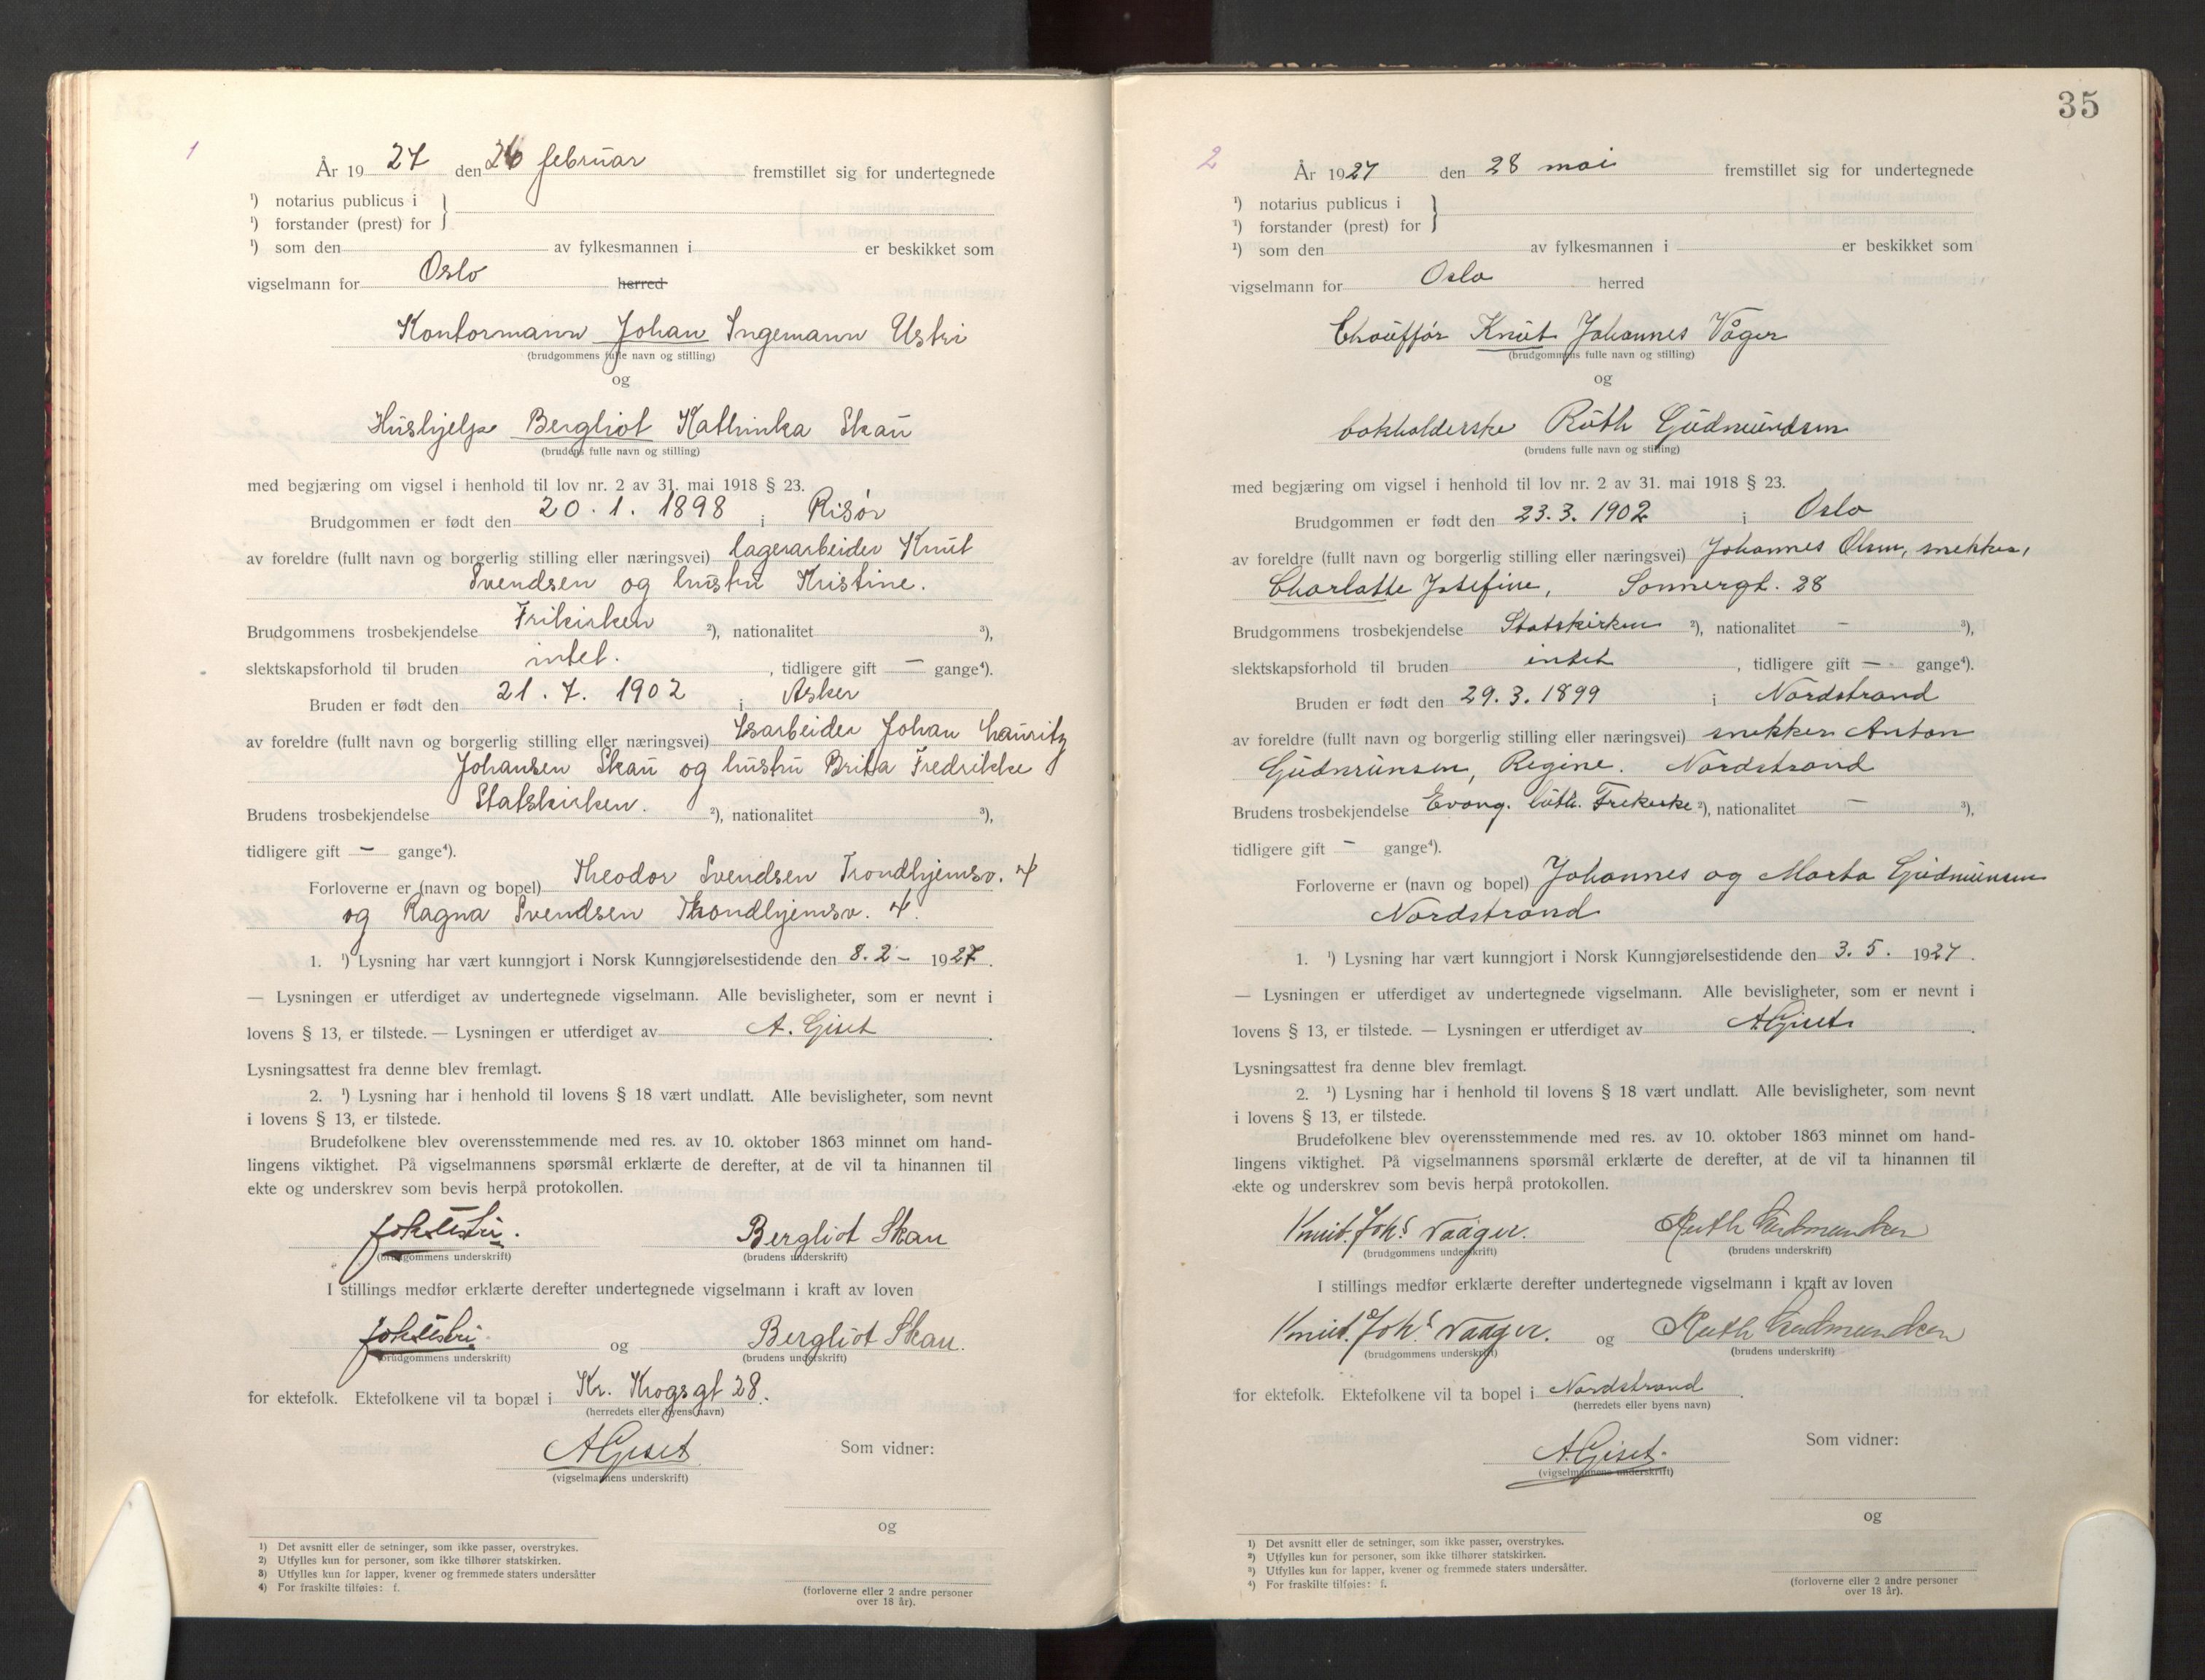 1
År 19 27 den 26 februar fremstillet sig for undertegnede
¹) notarius publicus i }
¹) forstander (prest) for
¹) som den av fylkesmannen i er beskikket som
vigselmann for Oslo herred
Kontormann Johan Ingemann Ustri
(brudgommens fulle navn og stilling)
og
Hushjelp Bergliot Kathinka Skau
(brudens fulle navn og stilling)
med begjæring om vigsel i henhold til lov nr. 2 av 31. mai 1918 § 23.
Brudgommen er født den 20. 1. 1898 i Risør
av foreldre (fullt navn og borgerlig stilling eller næringsvei) lagerarbeider Knut
Svendsen og hustru Kristine.
Brudgommens trosbekjendelse Frikirken ²), nationalitet ³),
slektskapsforhold til bruden intet. , tidligere gift — gange⁴).
Bruden er født den 21. 7. 1902 i Asker
av foreldre (fullt navn og borgerlig stilling eller næringsvei) Isarbeider Johan Lauritz
Johansen Skau og hustru Brita Fredrikke
Brudens trosbekjendelse Statskirken. ²), nationalitet ³),
tidligere gift — gange⁴).
Forloverne er (navn og bopel) Theodor Svendsen Trondhjemsv. 4
og Ragna Svendsen Trondhjemsv. 4.
1. ¹) Lysning har vært kunngjort i Norsk Kunngjørelsestidende den 8. 2 — 1927.
— Lysningen er utferdiget av undertegnede vigselmann. Alle bevisligheter, som er nevnt i
lovens § 13, er tilstede. — Lysningen er utferdiget av A. Giset .
Lysningsattest fra denne blev fremlagt.
2. ¹) Lysning har i henhold til lovens § 18 vært undlatt. Alle bevisligheter, som nevnt
i lovens § 13, er tilstede.
Brudefolkene blev overensstemmende med res. av 10. oktober 1863 minnet om hand-
lingens viktighet. På vigselmannens spørsmål erklærte de derefter, at de vil ta hinannen til
ekte og underskrev som bevis herpå protokollen.
Joh Ustri. Bergliot Skau
(brudgommens underskrift) (brudens underskrift)
I stillings medfør erklærte derefter undertegnede vigselmann i kraft av loven
Joh Ustri. og Bergliot Skau.
(brudgommens underskrift) (brudens underskrift)
for ektefolk. Ektefolkene vil ta bopæl i Kr. Krogsgt 28.
(herredets eller byens navn)
A Giset Som vidner:
(vigselmannens underskrift)
og
1) Det avsnitt eller de setninger, som ikke passer, overstrykes.
2) Utfylles kun for personer, som ikke tilhører statskirken.
3) Utfylles kun for lapper, kvener og fremmede staters undersåtter
4) For fraskilte tilføies: f.
(forloverne eller 2 andre personer
over 18 år).
35
2
År 1927 den 28 mai fremstillet sig for undertegnede
¹) notarius publicus i }
¹) forstander (prest) for
¹) som den av fylkesmannen i er beskikket som
vigselmann for Oslo herred
Chouffør Knut Johannes Våger
(brudgommens fulle navn og stilling)
og
bokholderske Ruth Gudmundsen
(brudens fulle navn og stilling)
med begjæring om vigsel i henhold til lov nr. 2 av 31. mai 1918 § 23.
Brudgommen er født den 23. 3. 1902 i Oslo
av foreldre (fullt navn og borgerlig stilling eller næringsvei) Johannes Olsen, snekker,
Charlotte Josefine, Sannergt. 28
Brudgommens trosbekjendelse Statskirken ²), nationalitet — ³),
slektskapsforhold til bruden intet , tidligere gift — gange⁴).
Bruden er født den 29. 3. 1899 i Nordstrand
av foreldre (fullt navn og borgerlig stilling eller næringsvei) snekker Anton
Gudmunsen, Regine. Nordstrand
Brudens trosbekjendelse Evang. luth. Frekirke ²), nationalitet — ³),
tidligere gift — gange⁴).
Forloverne er (navn og bopel) Johannes og Marta Gudmunsen
Nordstrand
1. ¹) Lysning har vært kunngjort i Norsk Kunngjørelsestidende den 3. 5. 1927.
— Lysningen er utferdiget av undertegnede vigselmann. Alle bevisligheter, som er nevnt i
lovens § 13, er tilstede. — Lysningen er utferdiget av A Giset .
Lysningsattest fra denne blev fremlagt.
2. ¹) Lysning har i henhold til lovens § 18 vært undlatt. Alle bevisligheter, som nevnt
i lovens § 13, er tilstede.
Brudefolkene blev overensstemmende med res. av 10. oktober 1863 minnet om hand-
lingens viktighet. På vigselmannens spørsmål erklærte de derefter, at de vil ta hinannen til
ekte og underskrev som bevis herpå protokollen.
Knut. Johs Vaager. Ruth Gudmundsen
(brudgommens underskrift) (brudens underskrift)
I stillings medfør erklærte derefter undertegnede vigselmann i kraft av loven
Knut. Johs Vaager. og Ruth Gudmundsen
(brudgommens underskrift) (brudens underskrift)
for ektefolk. Ektefolkene vil ta bopel i Nordstrand .
(herredets eller byens navn)
A. Giset. Som vidner:
(vigselmannens underskrift)
og
1) Det avsnitt eller de setninger, som ikke passer, overstrykes.
²) Utfylles kun for personer, som ikke tilhører statskirken.
³) Utfylles kun for lapper, kvener og fremmede staters undersåtter.
⁴) For fraskilte tilføies: f.
(forloverne eller 2 andre personer
over 18 år).